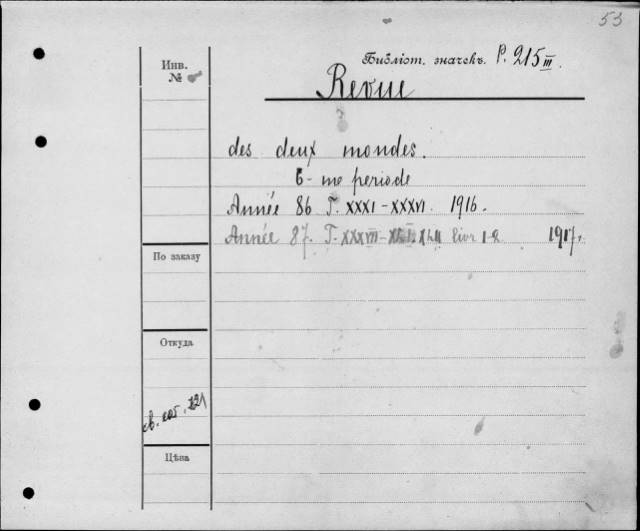 53
Библіот. значекъ. P. 215 III.
Инв.
№
Revue
des deux mondes.
6-me periode
Année 86 T. XXXI-XXXVI. 1916.
Année 87. T. XXXVII- livr 1-2 1917.
По заказу
Откуда
Цѣна